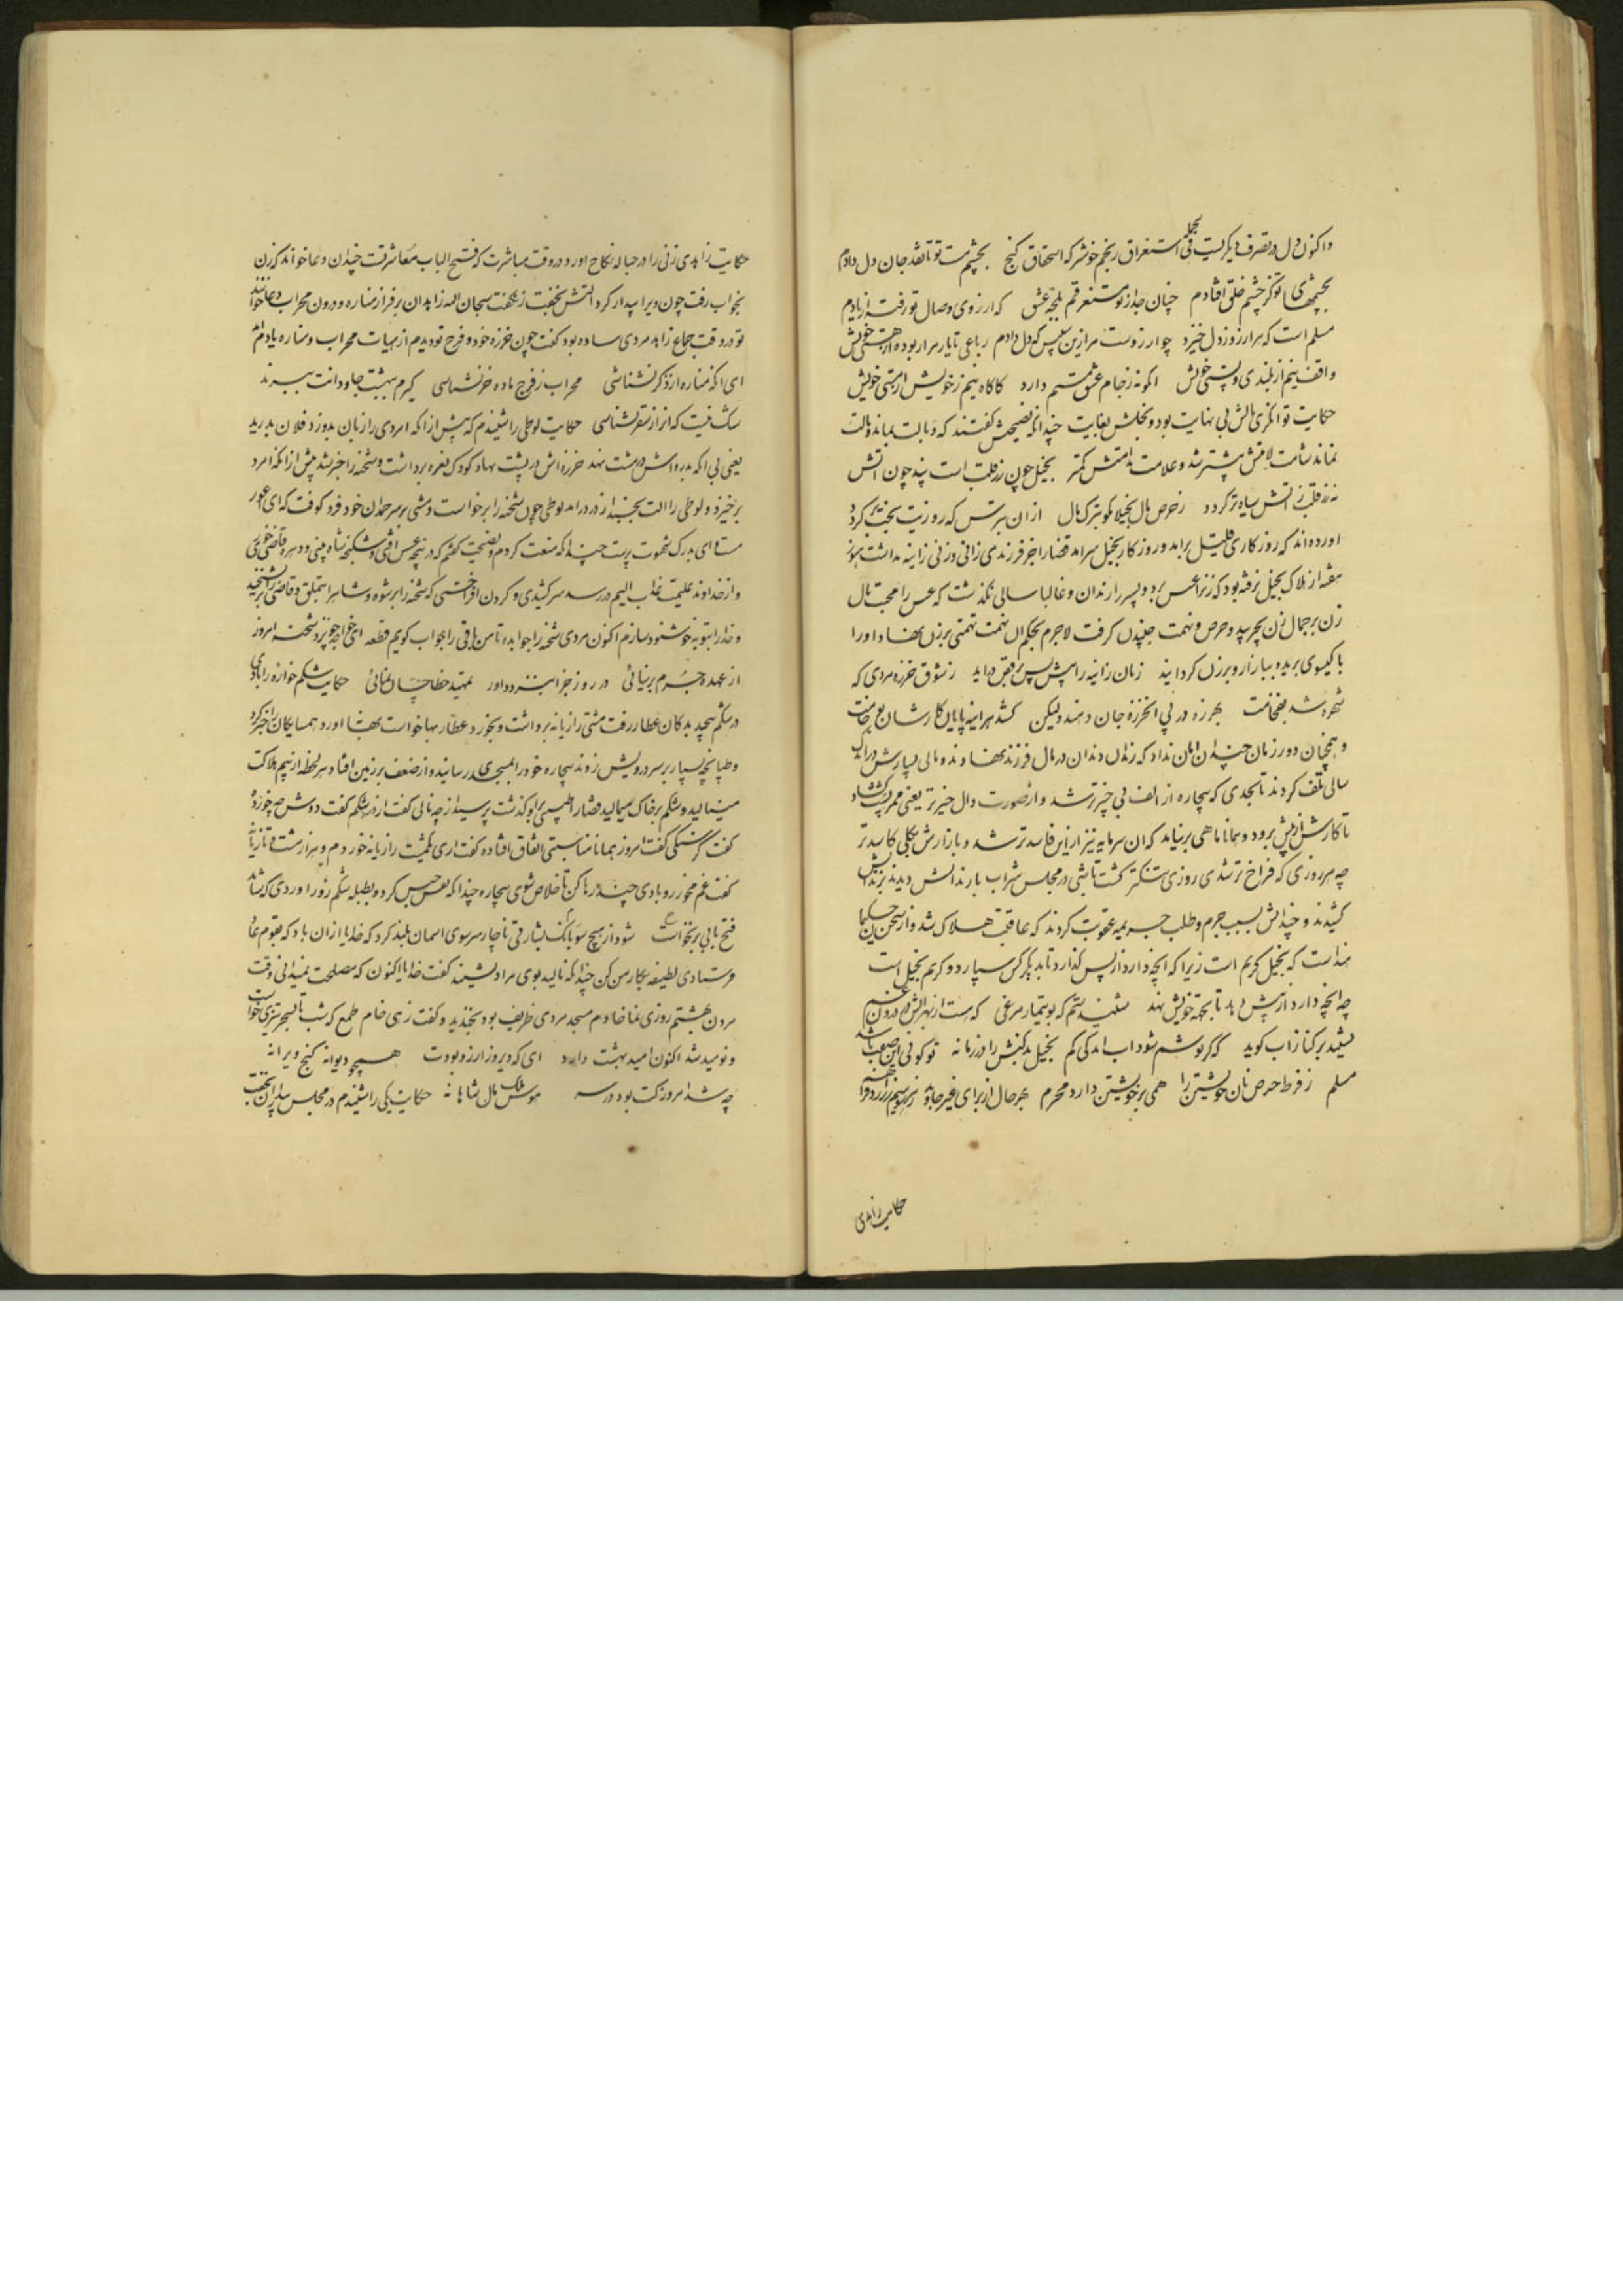 واکنون دل در تصرف دیگریست فی الجمله استغراق رنجم خوشتر که استحقاق گنج بچشم مست تو تا نقد جان و دل دادم
بچشمهای تو کز چشم خلق افتادم چنان جدا ز تو مستغرقم بلجه عشق که ارزوی وصال تو رفت از یادم
مسلم است که هر ارزو ز دل خیزد چو ارزوست مرا زین سپس که دل دادم رباعی تا یار مرا ربوده از هستی خویش
واقف نیم از بلندی و پستی خویش انگونه ز جام عشق مستم دارد کاگاه نیم ز خویش از مستی خویش
حکایت توانگری مالش بی نهایت بود و بخلش بغایت چندانکه نصیحتش گفتند که وبالت بماند و مالت
نماند شامت لامتش بیشتر شد و علامت ندامتش کمتر بخیل چون زر قلب است پند چون اتش
که زر قلب ز اتش سیاه تر گردد ز حرص مال بخیلا مگو بترک مال ازان بترس که روزیت بخت برگردد
اورده اند که روزگاری قلیل برامد و روزگار بخیل سرامد قضا را جز فرزندی زانی و زنی زانیه نداشت هنوز
هفته از هلاک بخیل نرفته بود که زن را عسس برد و پسر را رندان و غالبا سالی نگذشت که عسس را محبت مال
زن بر جمال زن بچربید و حرص و نهمت جنبیدن گرفت لاجرم بحکم ان نهمت تهمتی بر زن نهاد و او را
با گیسوی بریده ببازار و برزن گردانید زنان زانیه را پیش و پس برقص دراید ز شوق خرزه مردی که
شهره شد بضخامت بهرزه در پی ان خرزه جان دهند ولیکن کشد هراینه پایان کارشان بوخامت
و همچنان دور زمان چندان امان نداد که رندان دندان در مال فرزند نهادند و مالی بسیارش در اندک
سالی تلف کردند تا بحدی که بیچاره از الف بی چیزتر شد و از صورت دال
تا کارش از پیش برود و همانا ماهی برنیاید که ان سرمایه نیز از این فاسدتر شد و بازارش بکلی کاسدتر
چه هر روزی که فراخ تر شدی روزی تنگتر گشت تا شبی در مجلس شراب با رندانش دیدند بزندانش
کشیدند و چندانش بسبب جرم و طلب جریمه عقوبت کردند که عاقبت هلاک شد و از سخن حکیمان
است که بخیل کریم است زیرا که انچه دارد از پس گذارد تا بدیگر کس سپارد و کریم بخیل است
چه انچه دارد از پیش دهد تا بجهت خویش نهد شنیدستم که بوتیمار مرغی که هست از بهر الش در درون غم
نشیند بر کنار اب و گوید که گر نوشم شود اب اندکی کم بخیل بدکنش را در زمانه تو گوئی این صفت باشد
مسلم ز فرط حرص نان خویشتن را همی بر خویشتن دارد محرم بهر حال از برای غیر
حکایت زاهدی
حکایت زاهدی زنی را در حباله نکاح اورد در وقت مباشرت که فتح الباب معاشرت چندان دعا خواند که زن
بخواب رفت چون ویرا بیدار کرد التش بخفت زن گفت سبحان الله زاهدان بر فراز مناره و درون محراب دعا خوانند
تو در وقت جماع زاهد مردی ساده بود گفت چون خرزه خود و فرج تو دیدم از هیات محراب و مناره یادم امد
ای انکه مناره از ذکر نشناسی محراب ز فرج ماده خر نشناسی گیرم ببهشت جاودانت ببرند
شک نیست که انرا ز سقر نشناسی حکایت لوطی را شنیدم که پیش از انکه امردی را زبان بدوزد فلان بدرید
یعنی بی انکه بدره اش در مشت نهد خرزه اش در پشت نهاد کودک نعره برداشت و شحنه را خبر شد پیش از انکه امرد
برخیزد و لوطی را الت بخسبد از در درامد لوطی چون شحنه را برخواست و مشتی بر سر حمدان خود فرو کوفت که ای اعور
مستا وای بدرک شهوت پرست چندانکه منعت کردم و نصیحت گفتم که در پنجه عسس افتی و شکنجه شاه بینی و دره قاضی خوری
و از خداوند علیمت عذاب الیم در رسد سرکشیدی و گردن افراختی که شحنه را برشوه و شاه را بتملق و قاضی را
و خدا را بتوبه خوشنود سازم اکنون مردی شحنه را جواب ده تا من باقی را جواب گویم قطعه ای خواجه چو نزد شحنه امروز
از عهده جرم برنیائی در روز جزا بنزد داور تمهید خطا چسان نمائی حکایت شکم خواره را بادی
در شکم پیچید بدکان عطار رفت مشتی رازیانه برداشت و بخورد عطار بها خواست بها نه اورد همسایگان را خبر کرد
و طپانچه بسیار بر سر درویش زدند بیچاره خود را بمسجدی رسانید و از ضعف بر زمین افتاد هر لحظه از بیم هلاکت
مینالید و شکم بر خاک میمالید قضا را طبیبی بر او گذشت پرسید از چه نالی گفت از درد شکم گفت دوش چه خورده
گفت گرسنگی گفت امروز همانا مناسبتی اتفاق افتاده گفت اری یکمشت رازیانه خوردم و هزار مشت و تازیانه
گفت غم مخور رو بادی چند رها کن تا خلاص شوی بیچاره چندانکه نفس حبس کرد و بطبله شکم زور اوردی که شاید
فتح بابی برنخاست شود از هیچ سو بانک بشارتی ناچار سر سوی اسمان بلند کرد که خدایا ازان باد که بقوم عاد
فرستادی لطیفه بکار من کن چندانکه نالید بوی مراد نشنید گفت خدایا اکنون که مصلحت نمیدانی وقت
مردن بهشتم روزی نما خادم مسجد مردی ظریف بود بخندید و گفت زهی خام طمع که شب تا سحر تیزی خواست
و نومید شد اکنون امید بهشت دارد ای که دیروز ارزو بودت همچو دیوانه کنج ویرانه
چه شد امروز کت بود در سر هوس ملک و مال شاهانه حکایت یکی را شنیدم در مجلس